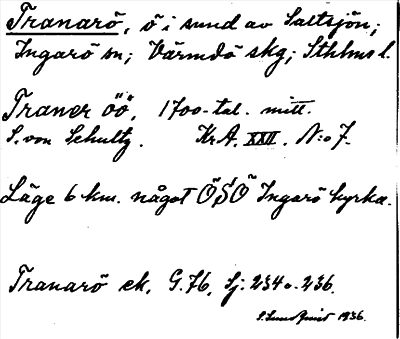 Tranarö, ö i sund av Saltsjön;
Ingarö sn; Värmdö skg; Sthlms l.
Traner öö, 1700-tal. mitt.
S. von Schultz. Kr.A. XXII. N:o 7.
Läge 6 km. något ÖSÖ Ingarö kyrka.
Tranarö ek. G. 76, Sj: 234 o. 236.
S. Sundquist 1936.